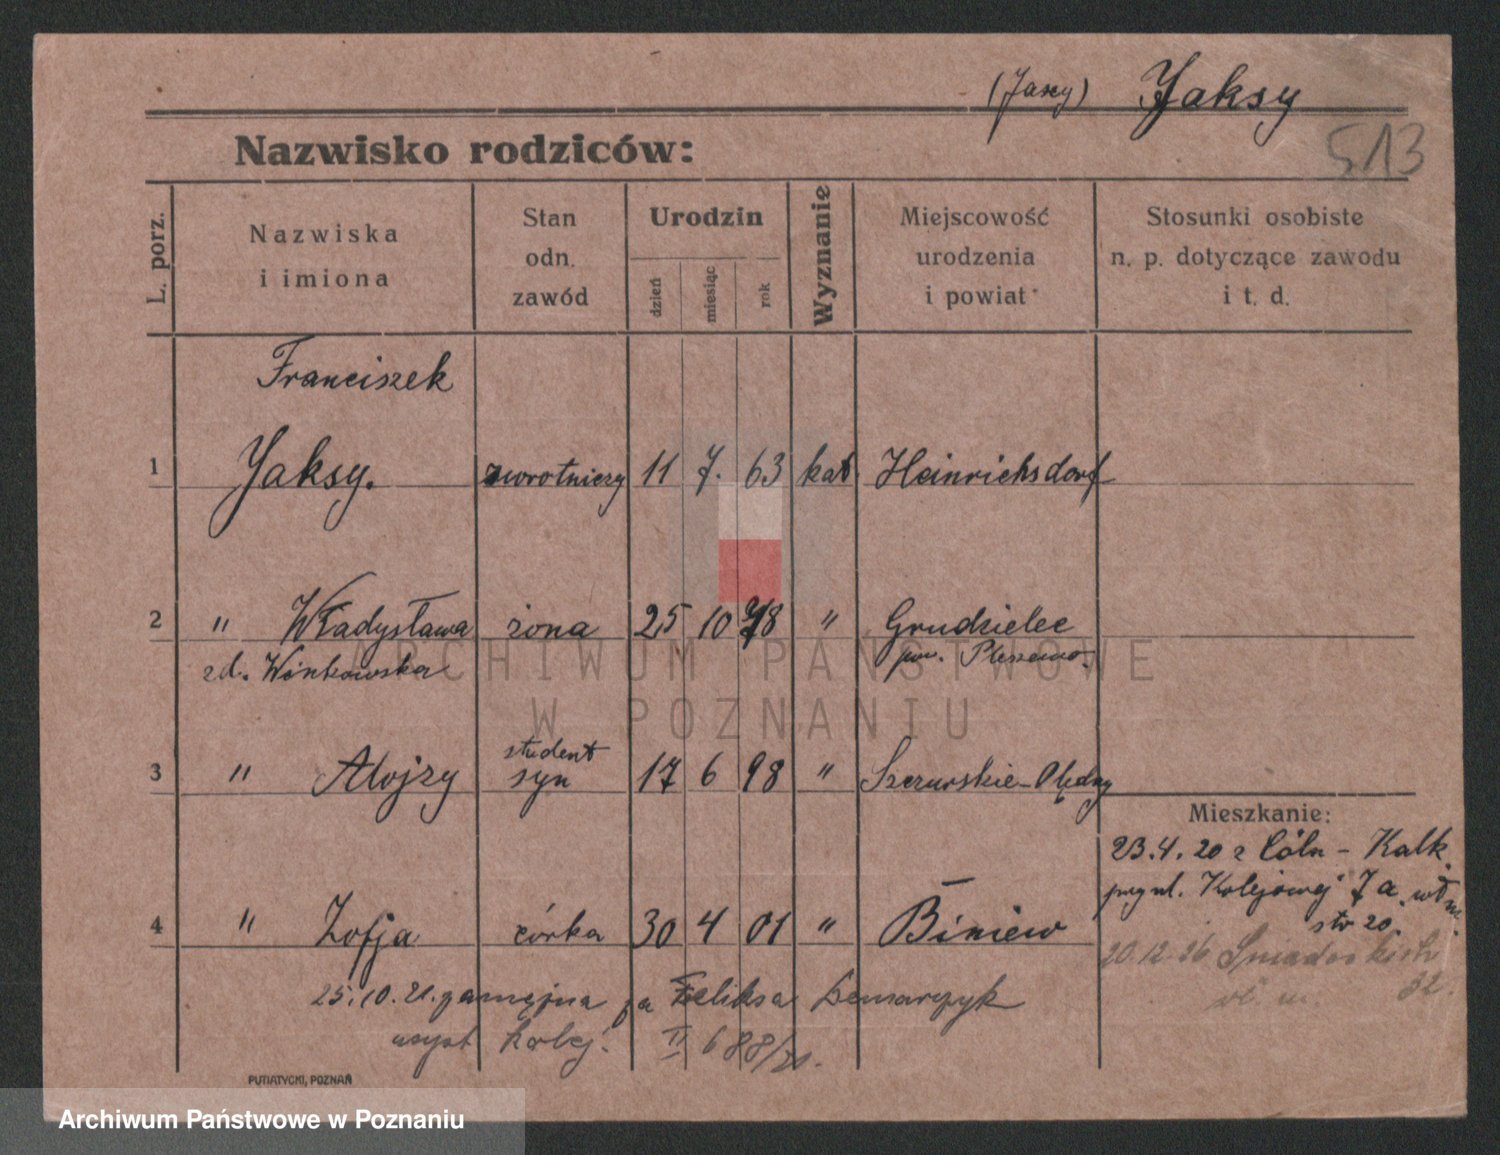 (Jaxy) Jaksy
513
Nazwisko rodziców:
L. porz.
Nazwiska
i imiona
Stan
odn.
zawód
Urodzin
dzień
miesiąc
rok
Wyznanie
Miejscowość
urodzenia
i powiat
Stosunki osobiste
n. p. dotyczące zawodu
i t. d.
Franciszek
1 Jaksy. zwrotniczy 11 7. 63 kat Heinrichsdorf
2 " Władysława żona 25 10 78 " Grudzielec
zd. Winkowska pow. Pleszewo.
student
3 " Alojzy syn 17 6 98 " Szczurskie-Olędry
Mieszkanie:
23.4.20 z Cöln - Kalk.
przy ul. Kolejowej 7a. wł m.
str 20.
4 " Zofja córka 30 4 01 " Biniew
20.12.26 Śniadeckich
32.
25.10.21. zamężna za Feliksa Demarczyk
asyst kolej. II 688/21.
PUTIATYCKI, POZNAŃ
ARCHIWUM PAŃSTWOWE
W POZNANIU
Archiwum Państwowe w Poznaniu